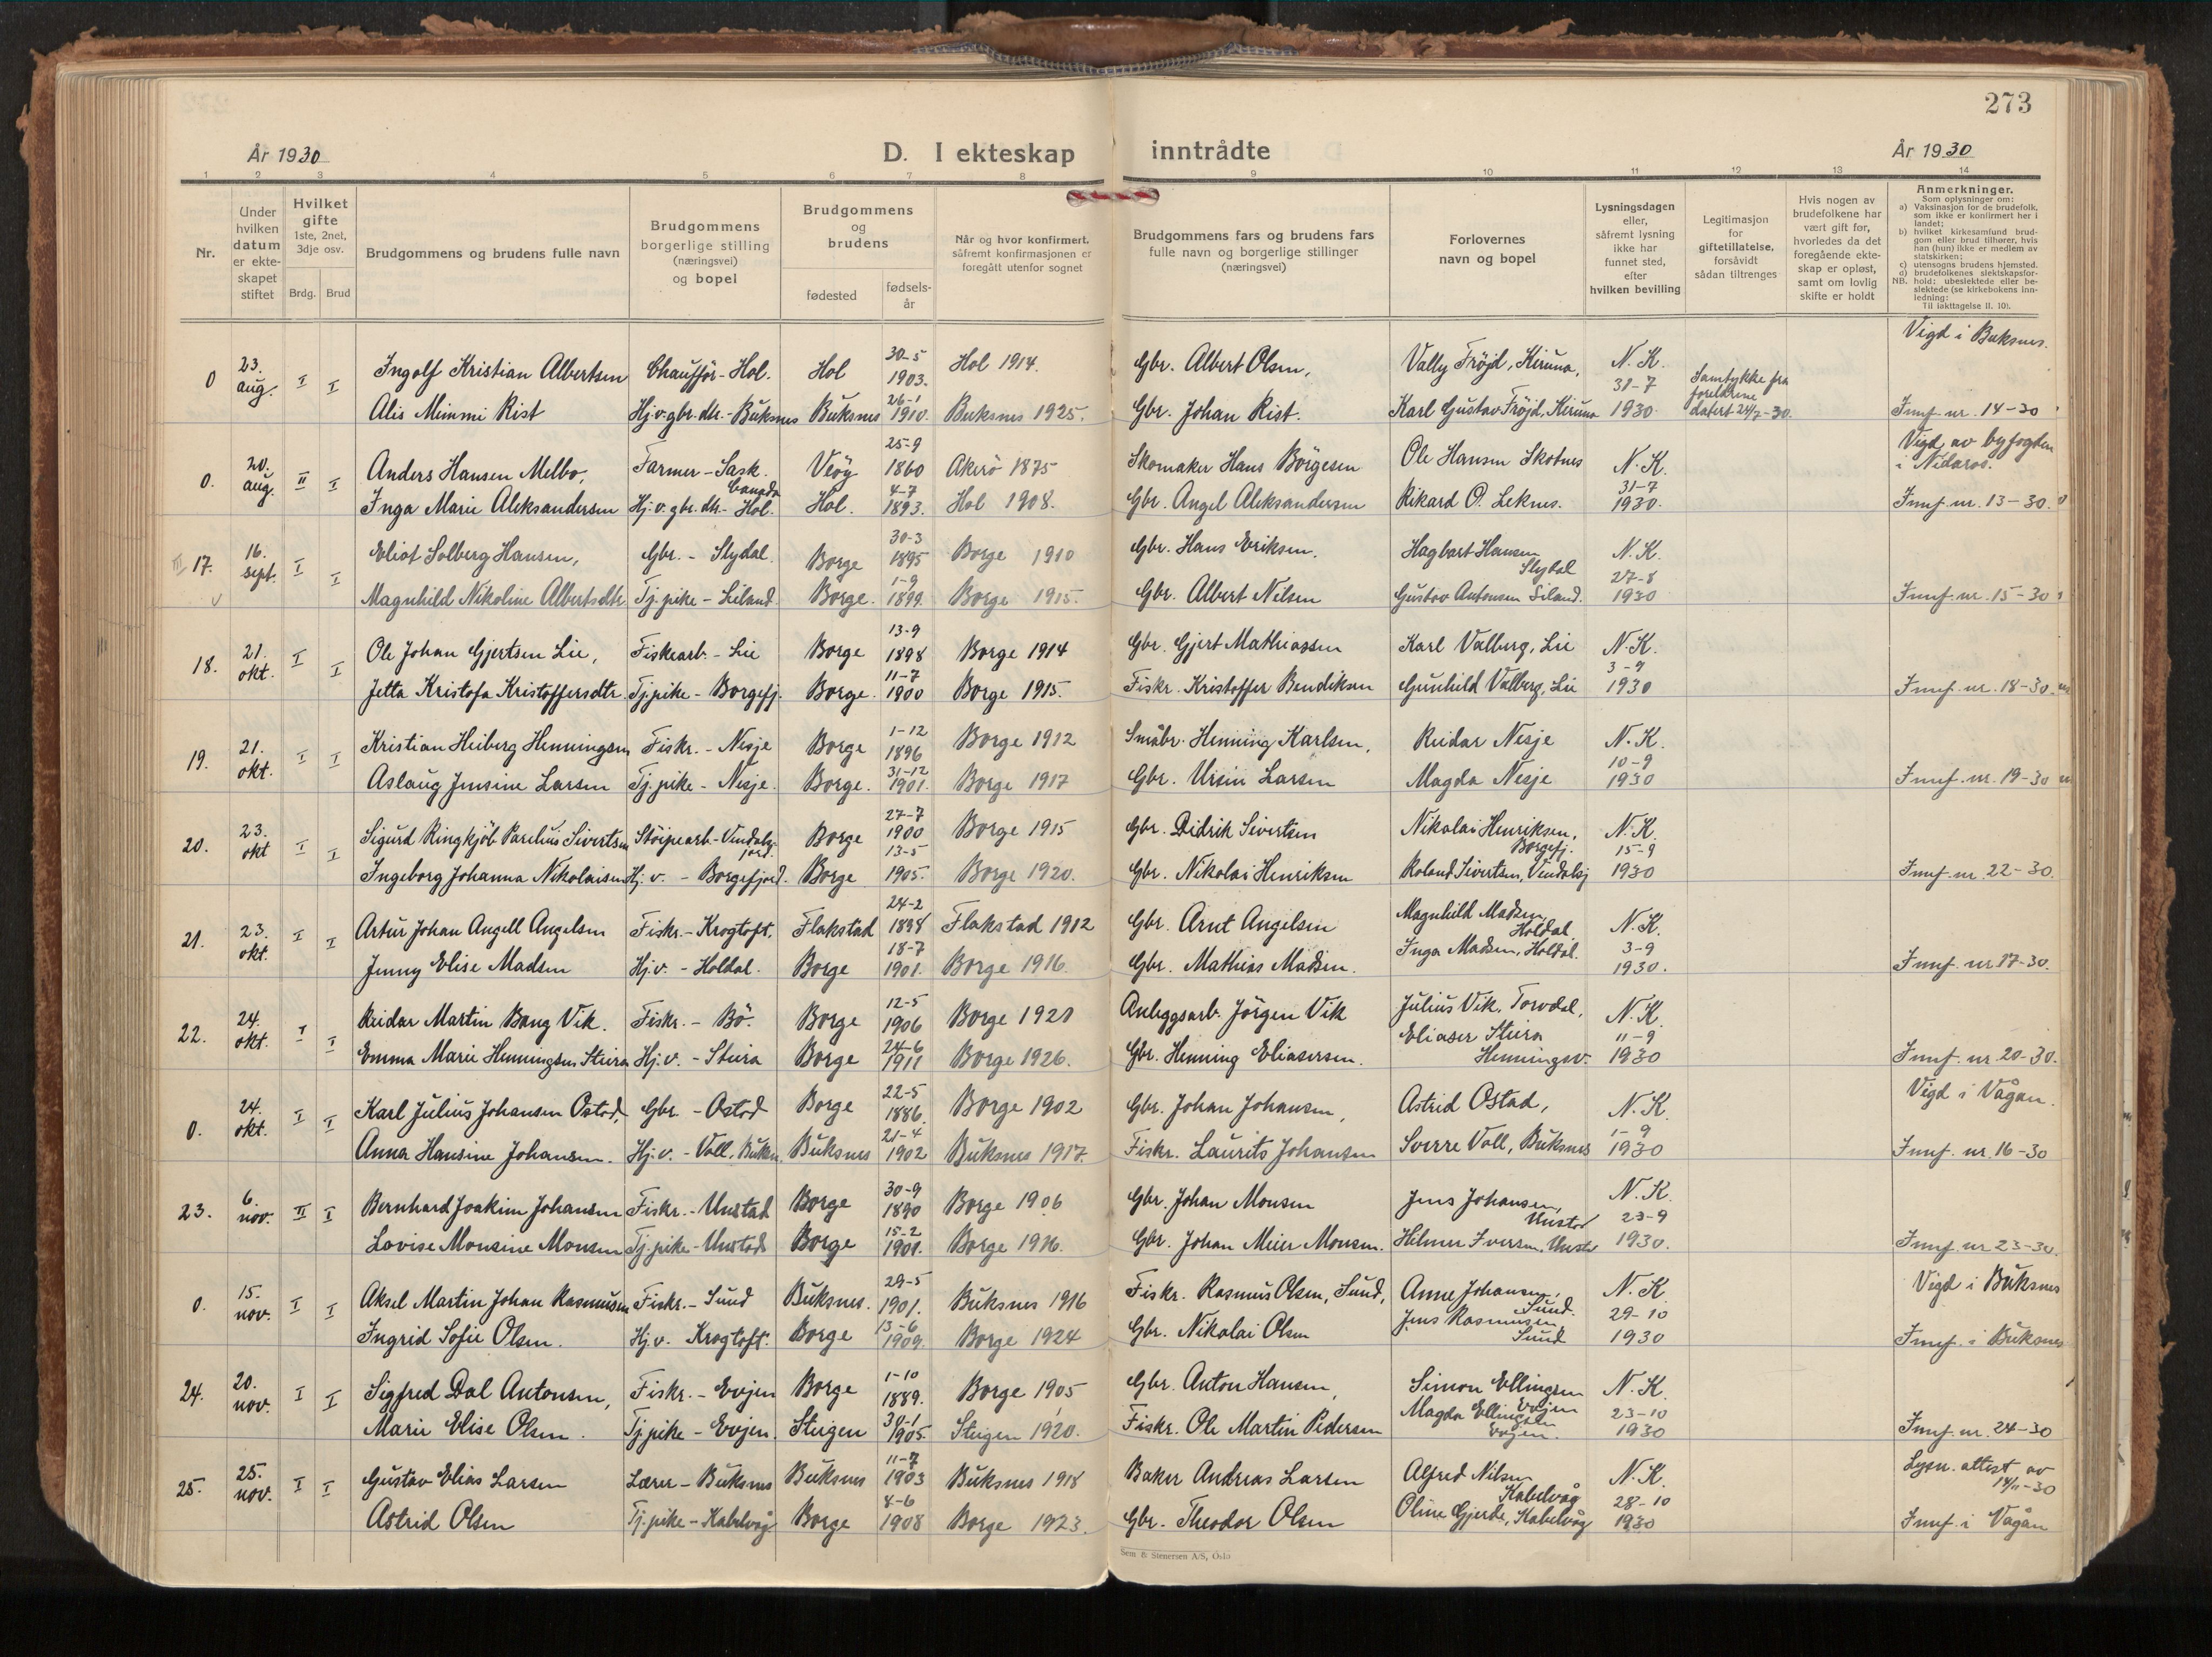 273
År 1930
D. I ekteskap
inntrådte
År 1930
1 2 3 4 5 6 7 8 9 10 11 12 13 14
Nr.
Under
hvilken
datum
er ekte-
skapet
stiftet
Hvilket
gifte
1ste, 2net,
3dje osv.
Brdg. Brud
Brudgommens og brudens fulle navn
Brudgommens
borgerlige stilling
(næringsvei)
og bopel
Brudgommens
og
brudens
fødested
fødsels-
år
Når og hvor konfirmert,
såfremt konfirmasjonen er
foregått utenfor sognet
Brudgommens fars og brudens fars
fulle navn og borgerlige stillinger
(næringsvei)
Forlovernes
navn og bopel
Lysningsdagen
eller,
såfremt lysning
ikke har
funnet sted,
efter
hvilken bevilling
Legitimasjon
for
giftetillatelse,
forsåvidt
sådan tiltrenges
Hvis nogen av
brudefolkene har
vært gift før,
hvorledes da det
foregående ekte-
skap er opløst,
samt om lovlig
skifte er holdt
Anmerkninger.
Som oplysninger om:
a) Vaksinasjon for de brudefolk,
som ikke er konfirmert her i
landet;
b) hvilket kirkesamfund brud-
gom eller brud tilhører, hvis
han (hun) ikke er medlem av
statskirken;
c) utensogns brudens hjemsted.
d) brudefolkenes slektskapsfor-
hold: ubeslektede eller be-
slektede (se kirkebokens inn-
ledning:
NB.
Til iakttagelse II. 10).
0 23. aug. I I
Ingolf Kristian Albertsen Chauffør - Hol. Hol 30-5 1903. Hol 1914. Gbr. Albert Olsen, Vally Fröjd, Kiruna, N.K. 31-7 Vigd i Buksnes.
Alis Mimmi Rist Hj.v. gbr. dtr. - Buksnes Buksnes 26-1 1910. Buksnes 1925. Gbr. Johan Rist. Karl Gustav Fröjd, Kiruna 1930. Samtykke fra foreldrene datert 24/7-30. Innf. nr. 14-30
0. 20. aug. II I
Anders Hansen Melbo, Farmer - Sask. Canada Veöy 25-9 1860 Akerö 1875 Skomaker Hans Börgesen Ole Hansen Skotnes N.K. 31-7 Vigd av byfogden i Nidaros.
Inga Marie Aleksandersen Hj.v. gbr. dtr. - Hol. Hol. 4-7 1893. Hol 1908. Gbr. Angel Aleksandersen Rikard O. Leknes. 1930. Innf. nr. 13-30.
17. 16. sept. I I
Eliot Solberg Hansen, Gbr. - Slydal. Borge 30-3 1895 Borge 1910 Gbr. Hans Eriksen. Hagbart Hansen Slydal N.K. 27-8
Magnhild Nikoline Albertsdtr. Tj.pike - Liland Borge. 1-9 1899. Borge 1915. Gbr. Albert Nilsen Gustav Antonsen Liland. 1930 Innf. nr. 15-30
18. 21. okt. I I
Ole Johan Gjertsen Lie, Fiskearb. - Lie Borge 13-9 1898 Borge 1914 Gbr. Gjert Mathiassen Karl Valberg, Lie N.K. 3-9
Jetta Kristofa Kristoffersdtr. Tj.pike - Borgefj. Borge. 11-7 1900 Borge 1915. Fiskr. Kristoffer Bendiksen Gunhild Valberg, Lie 1930 Innf. nr. 18-30.
19. 21. okt. I I
Kristian Heiberg Henningsen Fiskr. - Nesje Borge 1-12 1896 Borge 1912 Småbr. Henning Karlsen, Reidar Nesje N.K. 10-9
Aslaug Jensine Larsen Tj.pike - Nesje. Borge. 31-12 1901. Borge 1917 Gbr. Ursin Larsen Magda Nesje 1930 Innf. nr. 19-30
20. 23. okt I I
Sigurd Ringkjöb Parelius Sivertsen Stöipearb - Vendalsjord. Borge 27-7 1900 Borge 1915 Gbr. Didrik Sivertsen Nikolai Henriksen, Borgefj. N.K. 15-9
Ingeborg Johanna Nikolaisen Hj.v. - Borgefjord. Borge 13-5 1905. Borge 1920. Gbr. Nikolai Henriksen Roland Sivertsen, Vendalsj 1930 Innf. nr. 22-30.
21. 23. okt. I I
Artur Johan Angell Angelsen Fiskr. - Krogtoft. Flakstad 24-2 1898 Flakstad 1912 Gbr. Arnt Angelsen Magnhild Madsen, Holdal. N.K. 3-9
Jenny Elise Madsen Hj.v. - Holdal. Borge 18-7 1901. Borge 1916. Gbr. Mathias Madsen. Inga Madsen, Holdal. 1930. Innf. nr 17-30.
22. 24. okt. I I
Reidar Martin Bang Vik. Fiskr. - Bö. Borge 12-5 1906 Borge 1921 Anleggsarb. Jörgen Vik Julius Vik, Torvdal, N.K. 11-9
Emma Marie Henningsen Steira Hj.v. - Steira Borge 24-6 1911 Borge 1926. Gbr. Henning Eliasersen. Eliaser Steira Henningsv. 1930 Innf. nr. 20-30.
0. 24. okt. I I
Karl Julius Johansen Ostad, Gbr. - Ostad Borge 22-5 1886. Borge 1902 Gbr. Johan Johansen, Astrid Ostad, N.K. 1-9 Vigd i Vågan.
Anna Hansine Johansen. Hj.v. - Voll, Buksn. Buksnes 21-4 1902 Buksnes 1917. Fiskr. Laurits Johansen Sverre Voll, Buksnes 1930 Innf. nr. 16-30
23. 6. nov. II I
Bernhard Joakim Johansen Fiskr. - Unstad Borge 30-9 1890 Borge 1906 Gbr. Johan Monsen Jens Johansen, Unstad N.K. 23-9
Lovise Monsine Monsen Tj.pike - Unstad Borge 15-2 1901. Borge 1916. Gbr. Johan Meier Monsen. Hilmer Iversen, Unstad 1930. Innf. nr 23-30.
0. 15. nov. I I
Aksel Martin Johan Rasmussen Fiskr. - Sund Buksnes. 29-5 1901. Buksnes 1916 Fiskr. Rasmus Olsen, Sund, Anne Johansen, Sund. N.K. 29-10 Vigd i Buksnes
Ingrid Sofie Olsen. Hj.v. Krogtoft. Borge 13-6 1909. Borge 1924 Gbr. Nikolai Olsen Jens Rasmussen, Sund 1930 Innf. i Buksnes
24. 20. nov. I I
Sigfred Dal Antonsen, Fiskr. - Evjen Borge 1-10 1889. Borge 1905 Gbr. Anton Hansen, Simon Ellingsen Evjen N.K. 23-10
Marie Elise Olsen. Tj.pike - Evjen. Steigen 30-1 1905. Steigen 1920. Fiskr. Ole Martin Pedersen Magda Ellingsen Evjen. 1930 Innf. nr. 24-30
25. 25. nov. I I
Gustav Elias Larsen Lærer - Buksnes Buksnes 11-7 1903 Buksnes 1918 Baker Andreas Larsen Alfred Nilsen Kabelvåg N.K. 28-10 Lysn. attest av 14/11-30
Astrid Olsen Tj.pike - Kabelvåg Borge 8-6 1908 Borge 1923. Gbr. Theodor Olsen Oline Gjerde, Kabelvåg 1930 Innf. i Vågan
Sem & Stenersen A/S, Oslo